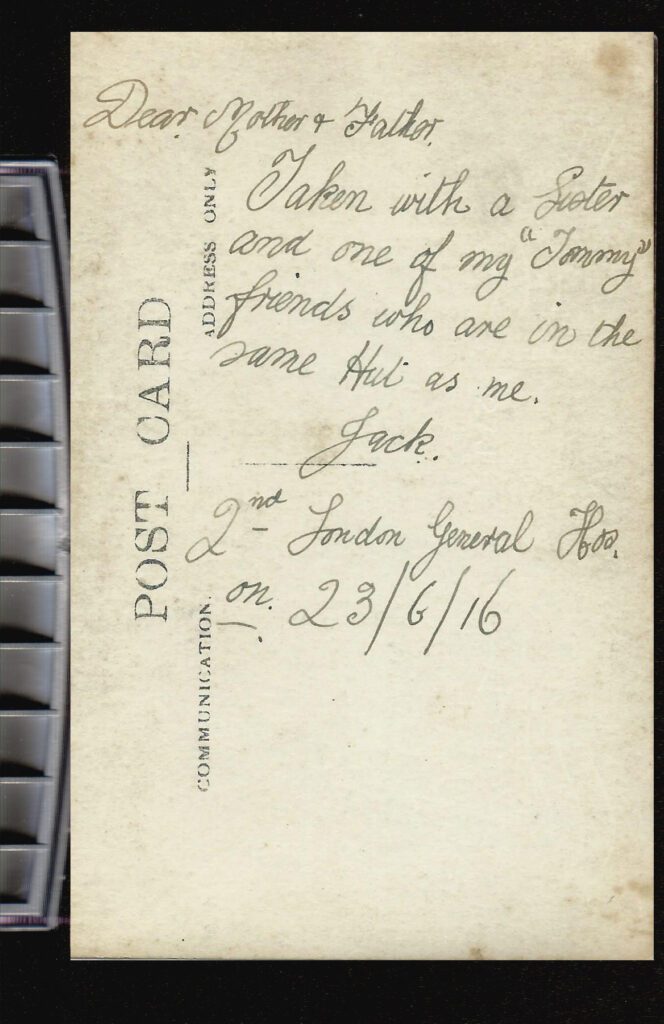 Dear Mother & Father.
Taken with a Sister
and one of my "Tommy"
friends who are in the
same Hut as me.
Jack.
2nd London General Hos.
on. 23/6/16
POST CARD
ADDRESS ONLY
COMMUNICATION.